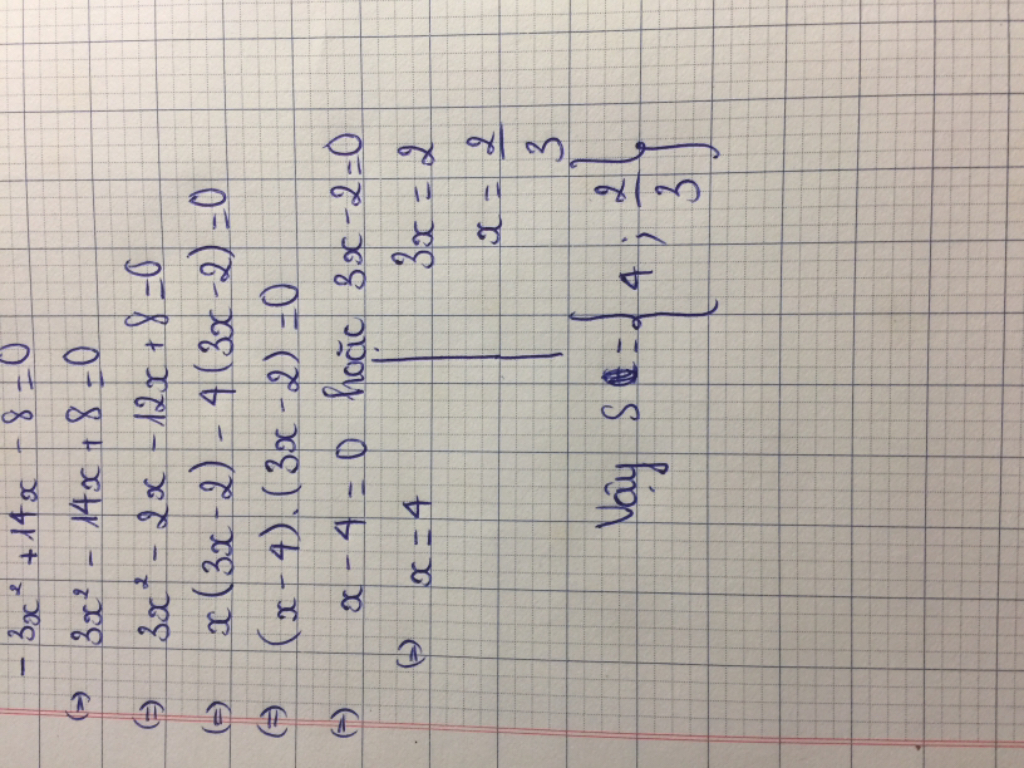 - 3x² + 14x - 8 = 0
(=) 3x² - 14x + 8 = 0
(=) 3x² - 2x - 12x + 8 = 0
(=) x(3x - 2) - 4(3x - 2) = 0
(=) (x - 4).(3x - 2) = 0
(=) x - 4 = 0 hoặc 3x - 2 = 0
(=) x = 4 | 3x = 2
x = 2/3
Vậy S = {4 ; 2/3}